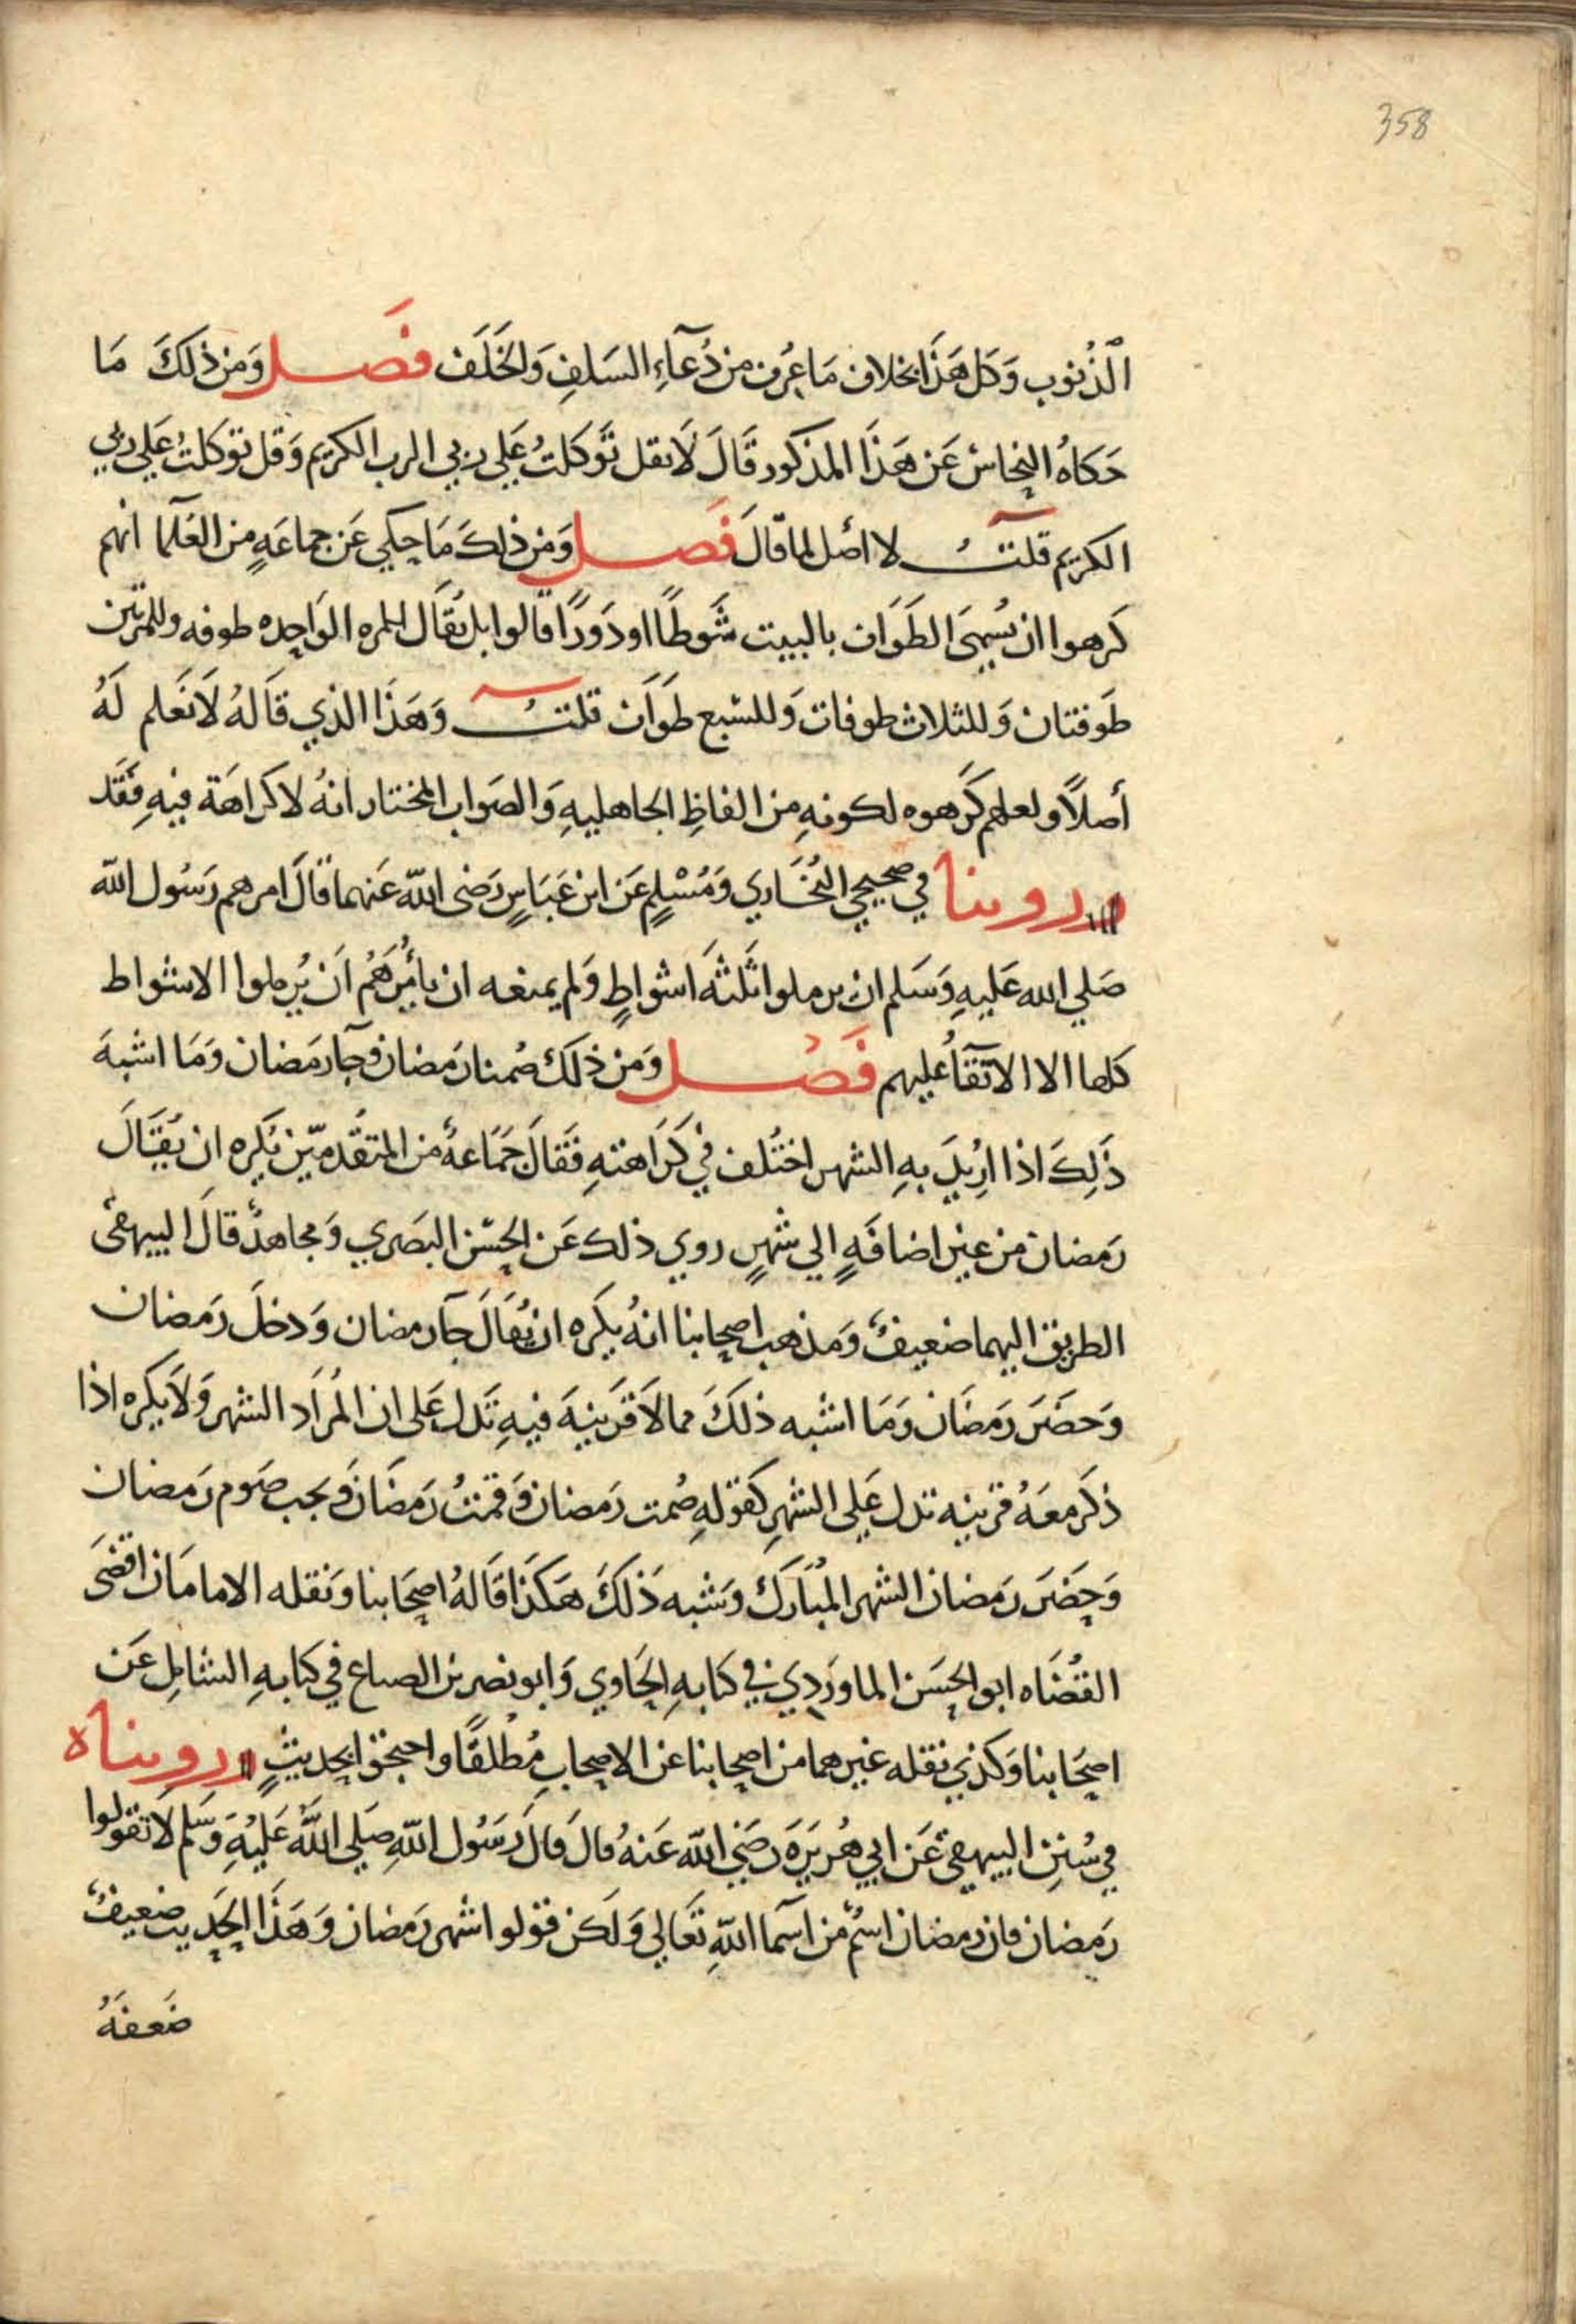 358
الذُنوب وَكل هَذَا بخلاف مَا عُرف من دُعآءِ السَلفِ وَالخَلَف فَصل وَمن ذلكَ مَا
حَكاهُ النحاس عَن هَذَا المذكور قَالَ لَا تقل تَوَكلتُ عَلي ربي الرب الكريم وَقل توكلتُ عَلي ربي
الكريم قلتُ لا اصل لما قالَ فَصل وَمن ذلكَ مَا حكي عَن جماعَةٍ من العَلمآ انهم
كَرهوا ان يُسمَى الطَوَاف بالبيت شَوطًا او دَورًا قالوا بل يُقَال للمره الوَاحِده طوفه وللمرتين
طَوفتان وَللثلاث طوفات وَللسبع طَوَاف قلتُ وَهَذَا الذي قَالهُ لَا نَعلم لَهُ
أصلاً ولعلهم كَرهوه لكونهِ من الفاظِ الجاهليهِ وَالصَواب المختار انهُ لا كرَاهَة فيهِ فَقَد
رروينا في صحيحي البُخَاري وَمُسْلمٍ عَن ابن عَبَاسٍ رَضى الله عَنهما قَالَ امرهم رَسُول الله
صَلي الله عَليهِ وَسَلم ان يرملوا ثَلثَةَ اشواطٍ وَلم يمنعه ان يأمُرَهُم اَن يُرملوا الاشواط
كلها الا الابقآءُ عليهم فَصْل وَمن ذلكَ صُمنا رَمضان وجآ رمَضان وَمَا اشبهَ
ذَلِكَ اذا اُرِيدَ بهِ الشهر اختُلف في كَرَاهتهِ فَقالَ جَمَاعةُ من المتقَدمين يُكره ان يُقَالَ
رَمضان من غير اضافَةٍ الي شهرٍ روي ذلك عَن الحسَن البصَري وَمجاهدٌ قالَ البيهقى
الطريق اليهما ضعيفٌ وَمذهب اصحابنا انهُ يكَره ان يُقَالَ جآ رمضان وَدخلَ رمَضان
وَحضَرَ رمَضَان وَمَا اشبه ذلكَ مما لَا قَرينةَ فيهِ تَدل عَلى ان المُرَاد الشهر وَلَا يكره اذا
ذكَر معَهُ قرينه تدل عَلى الشهرِ كَقولهِ صُمت رَمضان وَقمتُ رَمضَان وَيجب صَوم رَمضان
وَحضَرَ رَمضان الشهر المُبَارَك وَشبه ذَلكَ هَكذَا قَالهُ اصحَابنا وَنقله الامامَان اقضَى
القُضَاه ابو الحسَن الماوَردي في كتابهِ الحَاوي وَابو نصر بن الصباع في كتابهِ الشامِل عَن
اصحَابنا وَكذي نقله غيرهما من اصحابنا عن الاصحابِ مُطلقًا واحتجوا بحديثٍ رويناه
في سُنَنِ البيهقي عَن ابي هُريرَة رَضى الله عَنهُ قالَ قالَ رَسُول اللهِ صَلي اللهُ عَليْهِ وَسَلم لَا تقولوا
رَمضان فان رمضان اسمٌ من اسمآ اللهِ تعَالي وَلَكن قولوا شهر رَمضان وَهَذَا الحَديث ضعيفٌ
ضَعفَهُ